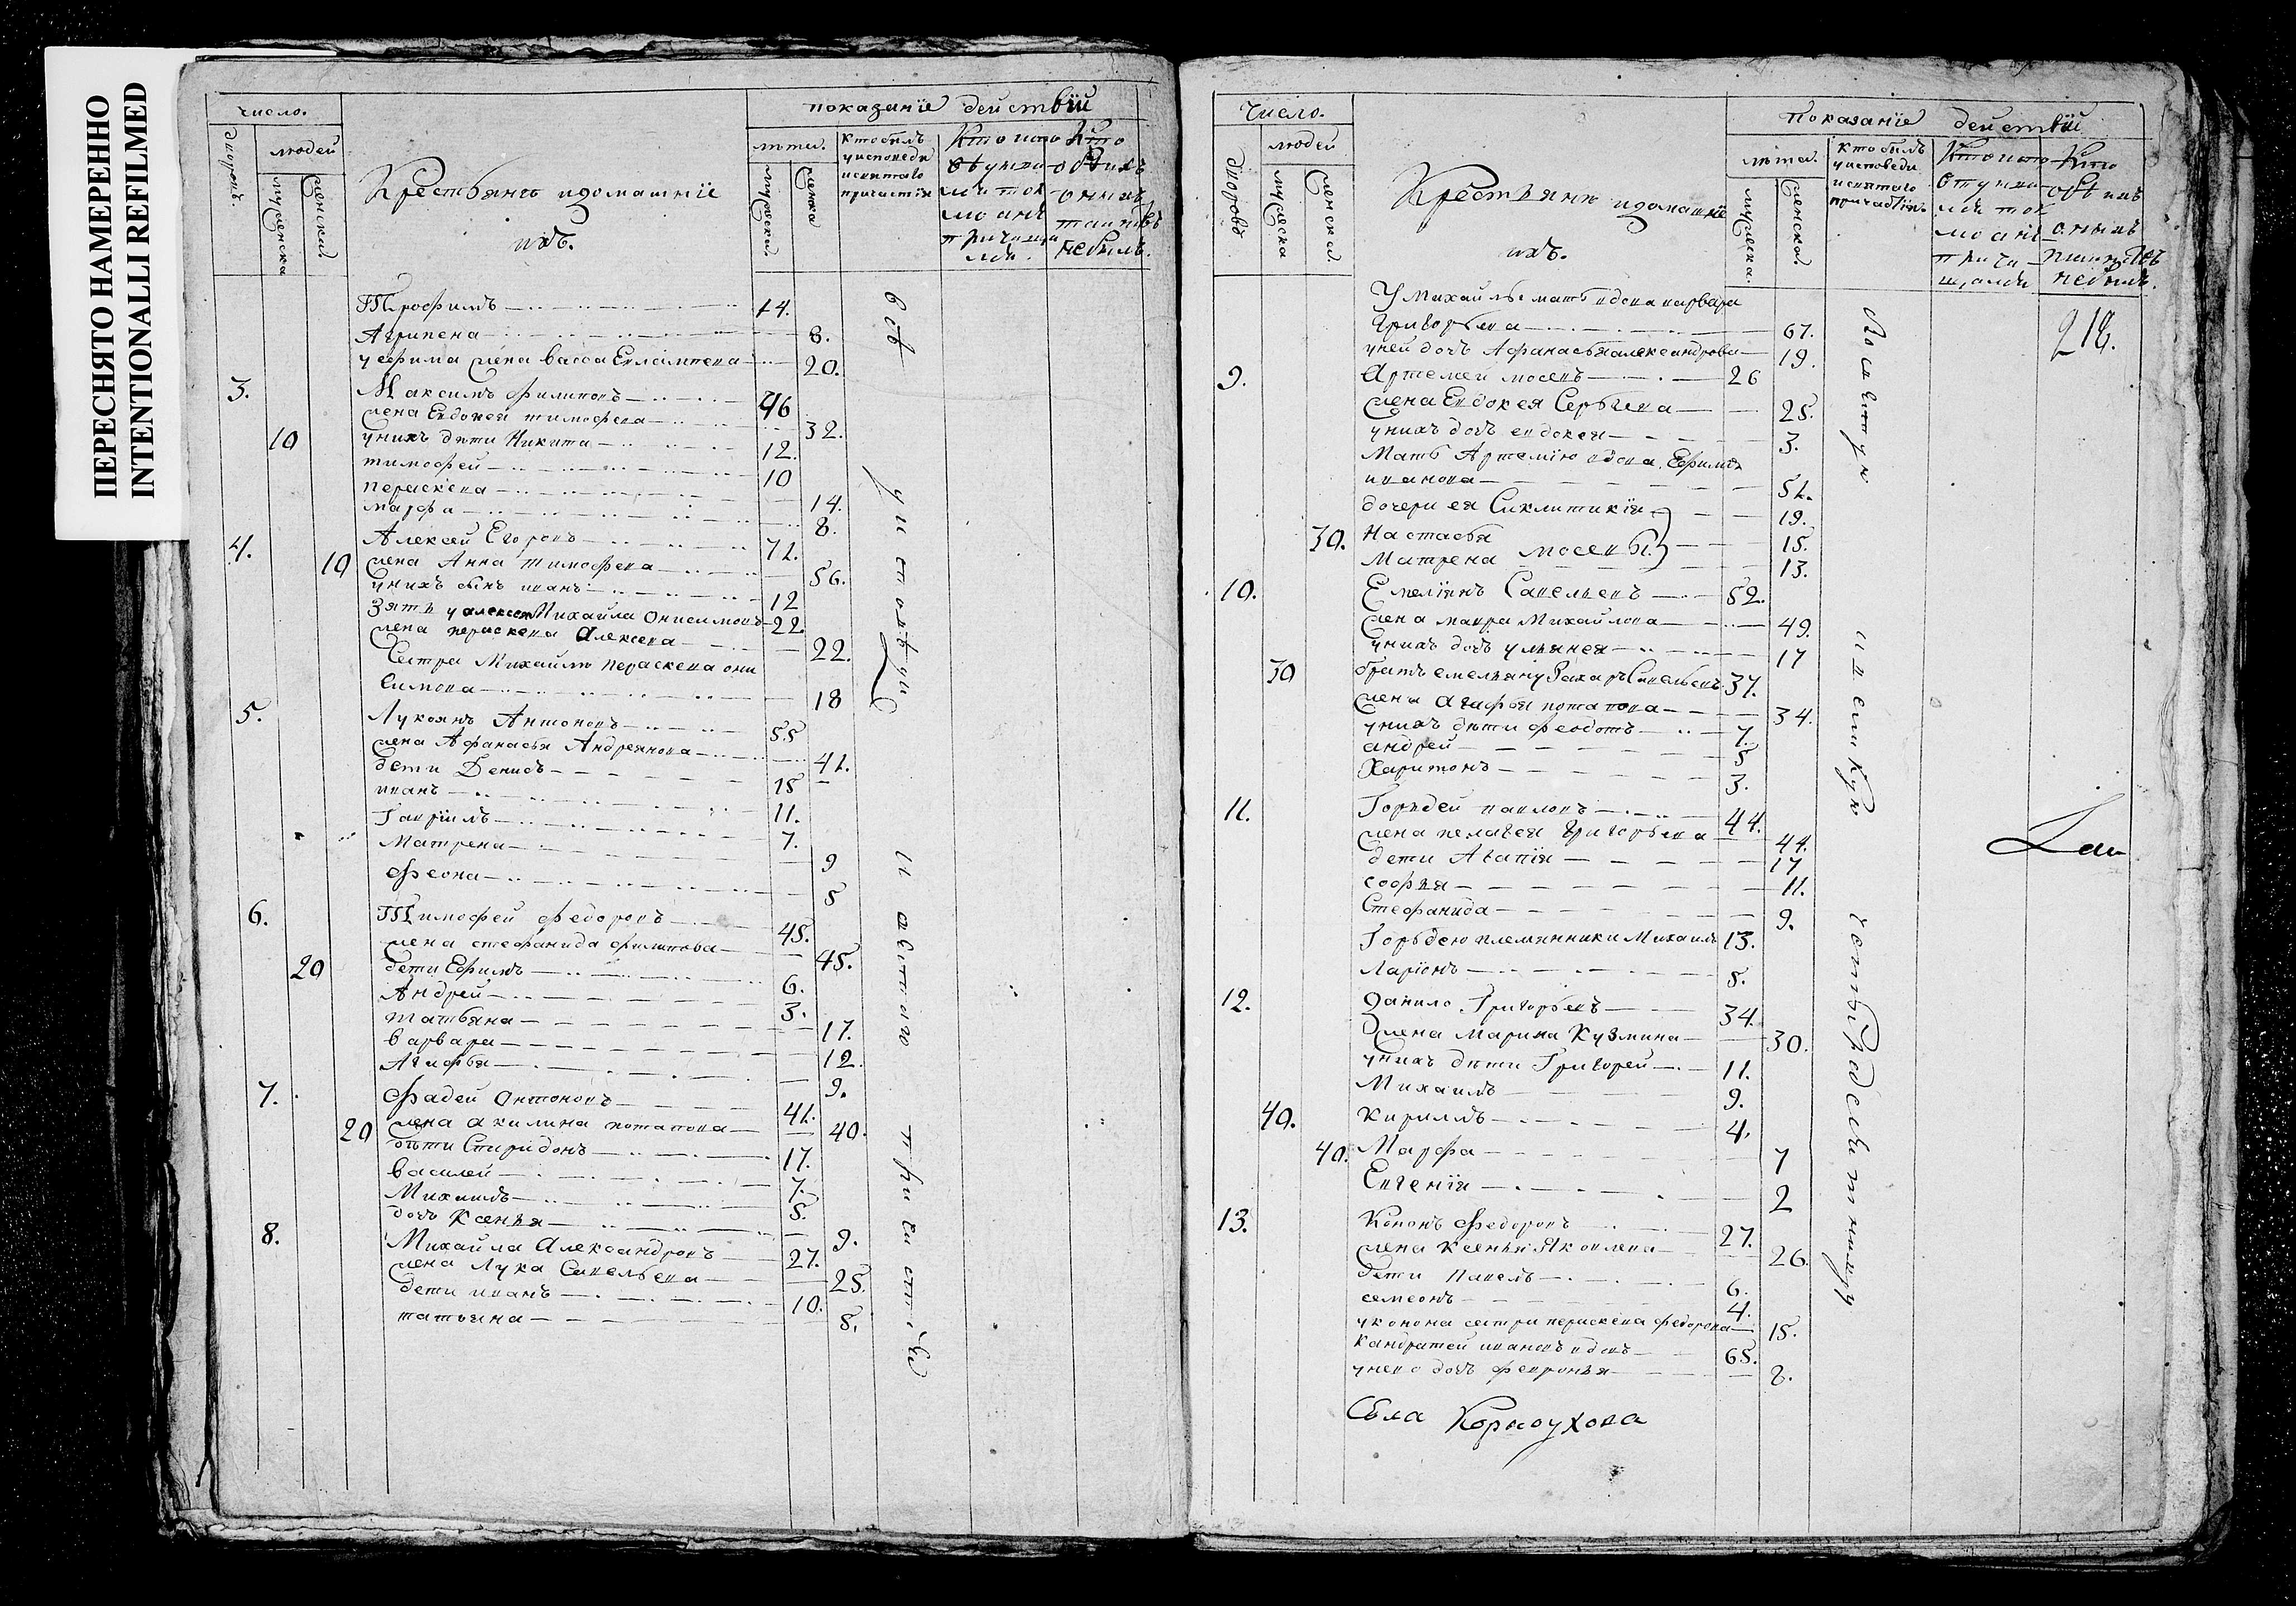 ПЕРЕСНЯТО НАМЕРЕННО
INTENTIONALLI REFILMED
число.
показание действiй
дворовъ.
людей
мужеска
женска.
Крестьянъ идомашнiе
ихъ.
лета.
мужеска.
женска
Кто былъ
уисповеди
исвятаго
причастiя
Трофимъ 14.
Агрипена 8.
у ефима жена васса Евлампева 20.
3. Максимъ филиповъ 46
жена Евдокея тимофева 32.
10 унихъ дети Никита 12.
тимофей 10
пераскева 14.
марфа 8.
4. Алексей Егоровъ 71.
10 жена Анна тимофева 56.
унихъ сынъ иванъ 12
Зять у алексея Михайла Онисимовъ 22.
жена пераскева Алексева 22.
Сестра Михайлы пераскева они
симова 18
5. Лукоянъ Антоновъ 55
жена Афанасья Андреянова 41.
дети Денисъ 15
иванъ 11.
Гаврiилъ 7.
Матрена 9
Феона 5
6. Тимофей Федоровъ 45.
жена стефанида филипова 45.
20 дети Ефимъ 6.
Андрей 3.
татьяна 17.
варвара 12.
Агафья 9.
7. Фадей Антоновъ 41.
20 жена акилина потапова 40.
дети Спиридонъ 17.
василей 7.
Михаилъ 5.
дочь Ксенья 9.
8. Михайла Александровъ 27.
жена Лука Савельева 25.
дети иванъ 10.
татьяна 8.
все
уисповеди
и святаго
причастiя
Число.
Показанiе действiй
дворовъ
людей
мужеска
женска.
Крестьянъ идомашнiе
ихъ.
лета.
мужеска.
женска.
Кто былъ
уисповеди
исвятаго
причастiя
218.
У Михайлы мать вдова варвара
Григорьева 67.
уней дочь Афанасья александрова 19.
9. Артемей мосевъ 26
жена Евдокея Сергеева 25.
унихъ дочь евдокея 3.
Мать Артемiю вдова Ефимiя
иванова 51.
дочери ея Сиклитикiя 19.
30. Настасья 15.
Матрена мосевы 13.
10. Емелiянъ Савельевъ 52.
жена мавра Михайлова 49.
унихъ дочь ульянея 17
30 братъ емельяну Захаръ Савельевъ 37.
жена агафья потапова 34.
унихъ дети феодотъ 7.
андрей 5
Харитонъ 3.
11. Горьдей павловъ 44.
жена пелагея Григорьева 44.
дети Агапiя 17
софья 11.
Стефанида 9.
Горьдею племянники Михаилъ 13.
Ларiонъ 8.
12. Данило Григорьевъ 34.
жена Марина Кузмина 30.
унихъ дети Григорей 11.
Михаилъ 9.
40. Кирилъ 4.
40. Марфа 7
Евгенiя 2
13. Кононъ Федоровъ 27.
жена ксенья Яковлева 26.
дети Павелъ 6.
семеонъ 4.
уконона сестра пераскева федорова 15.
Кандратей ивановъ вдовъ 65.
унево дочь февронья 8.
Села Корноухова